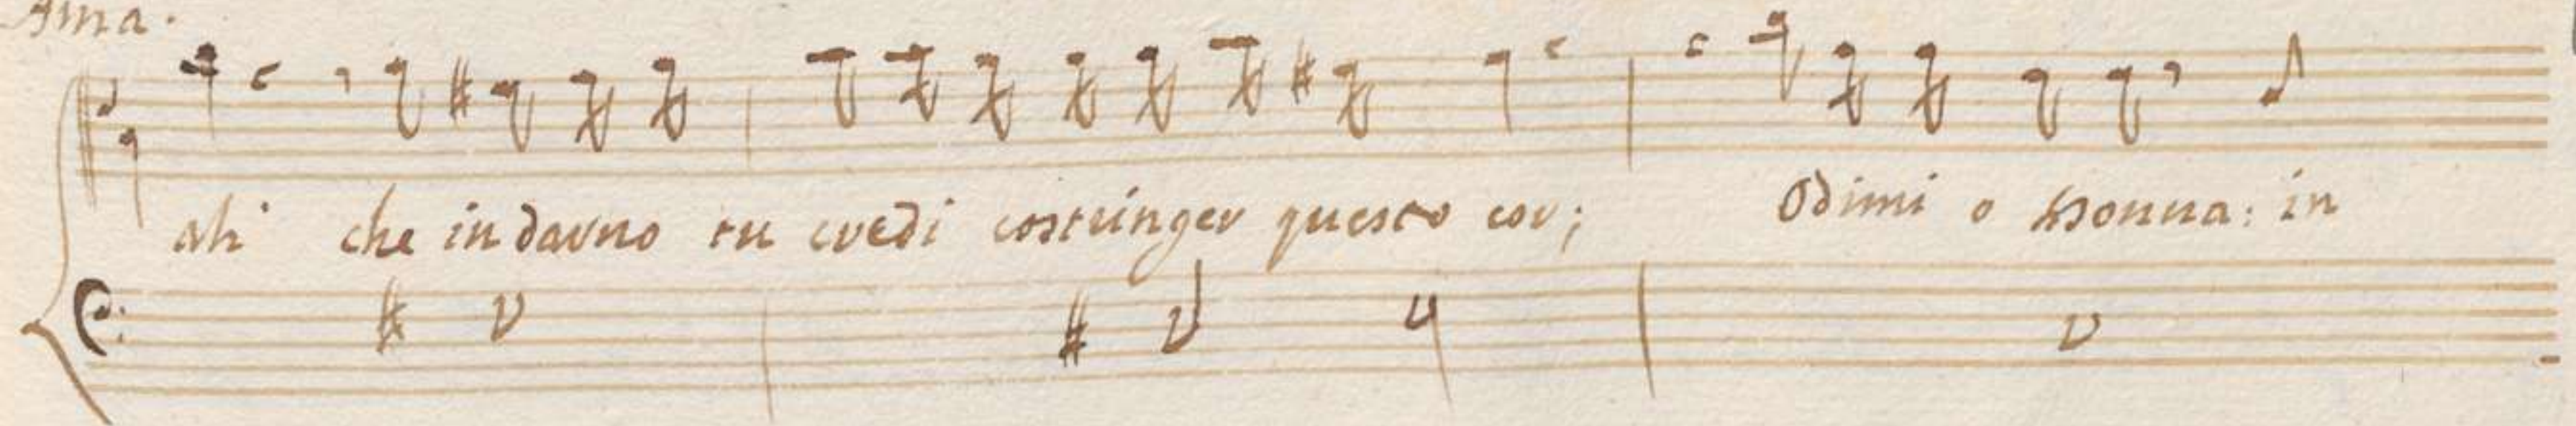 Ama.
ahi che indarno tu credi costringer questo cor; Odimi o Donna: in